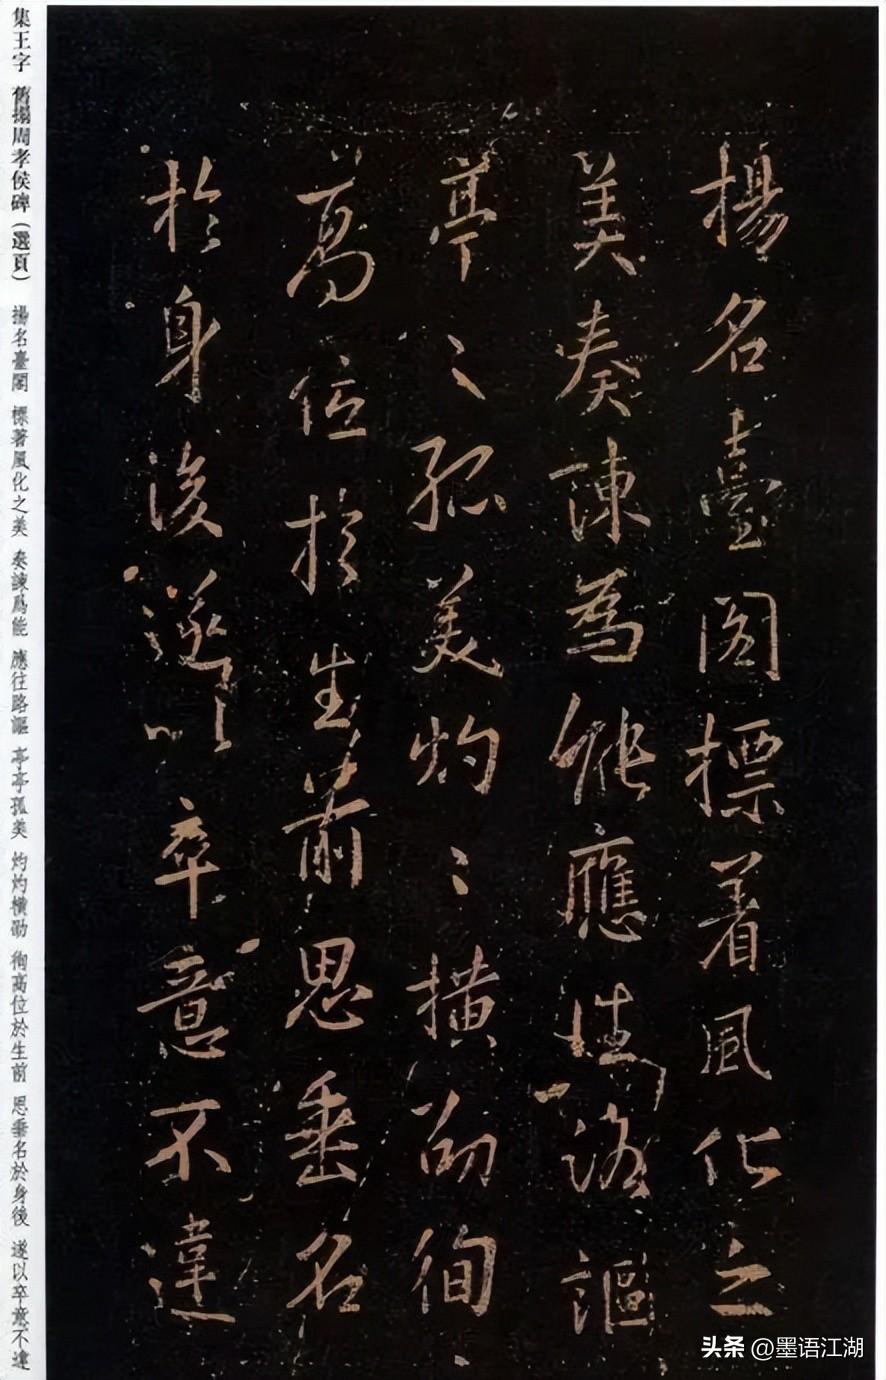 揚名臺閣標着風化之
美奏陳為能應往路謳
亭〻孤美灼〻橫劭徇
高位於生前思垂名
於身後遂以卒意不違
集王字 舊搨周孝侯碑（選頁） 揚名臺閣 標著風化之美 奏諫爲能 應往路謳 亭亭孤美 灼灼橫劭 徇高位於生前 思垂名於身後 遂以卒意不違
头条 @墨语江湖